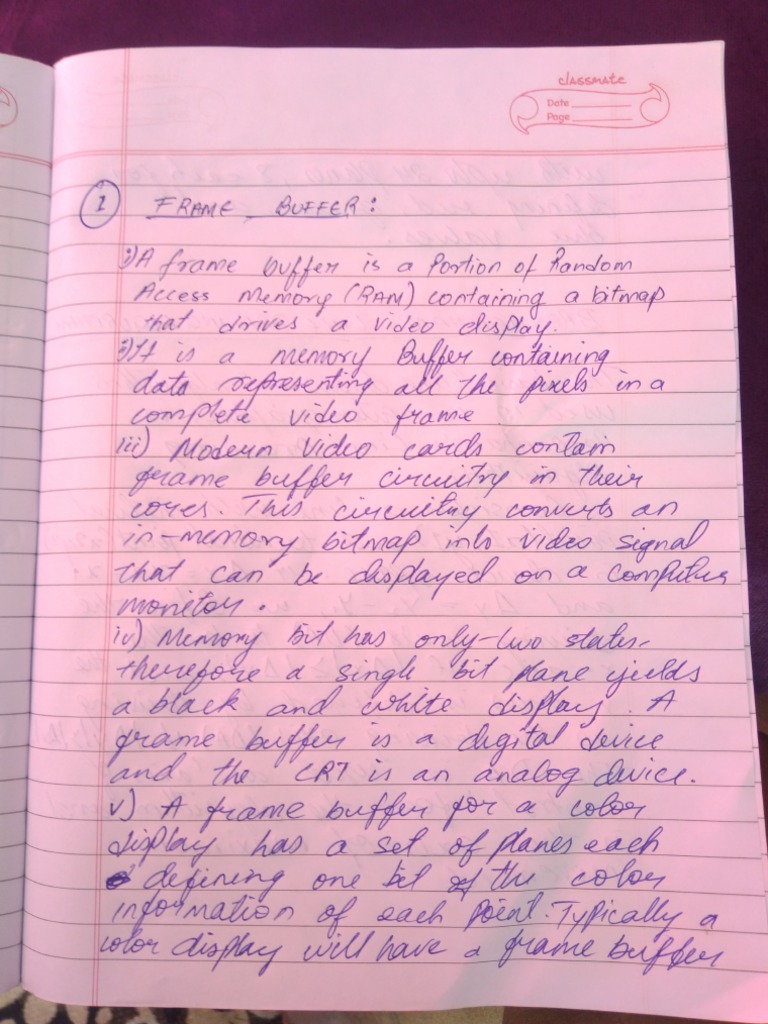 classmate
Date
Page
1 FRAME BUFFER:
i) A frame buffer is a Portion of Random
Access Memory (RAM) containing a bitmap
that drives a video display.
ii) It is a memory Buffer containing
data representing all the pixels in a
complete video frame
iii) Modern Video cards contain
frame buffer circuitry in their
cores. This circuitry converts an
in-memory bitmap into video signal
that can be displayed on a computer
monitor.
iv) Memory bit has only-two states,
therefore a single bit plane yields
a black and white display. A
frame buffer is a digital device
and the CRT is an analog device.
v) A frame buffer for a color
display has a set of planes each
defining one bit of the color
information of each point. Typically a
color display will have a frame buffer